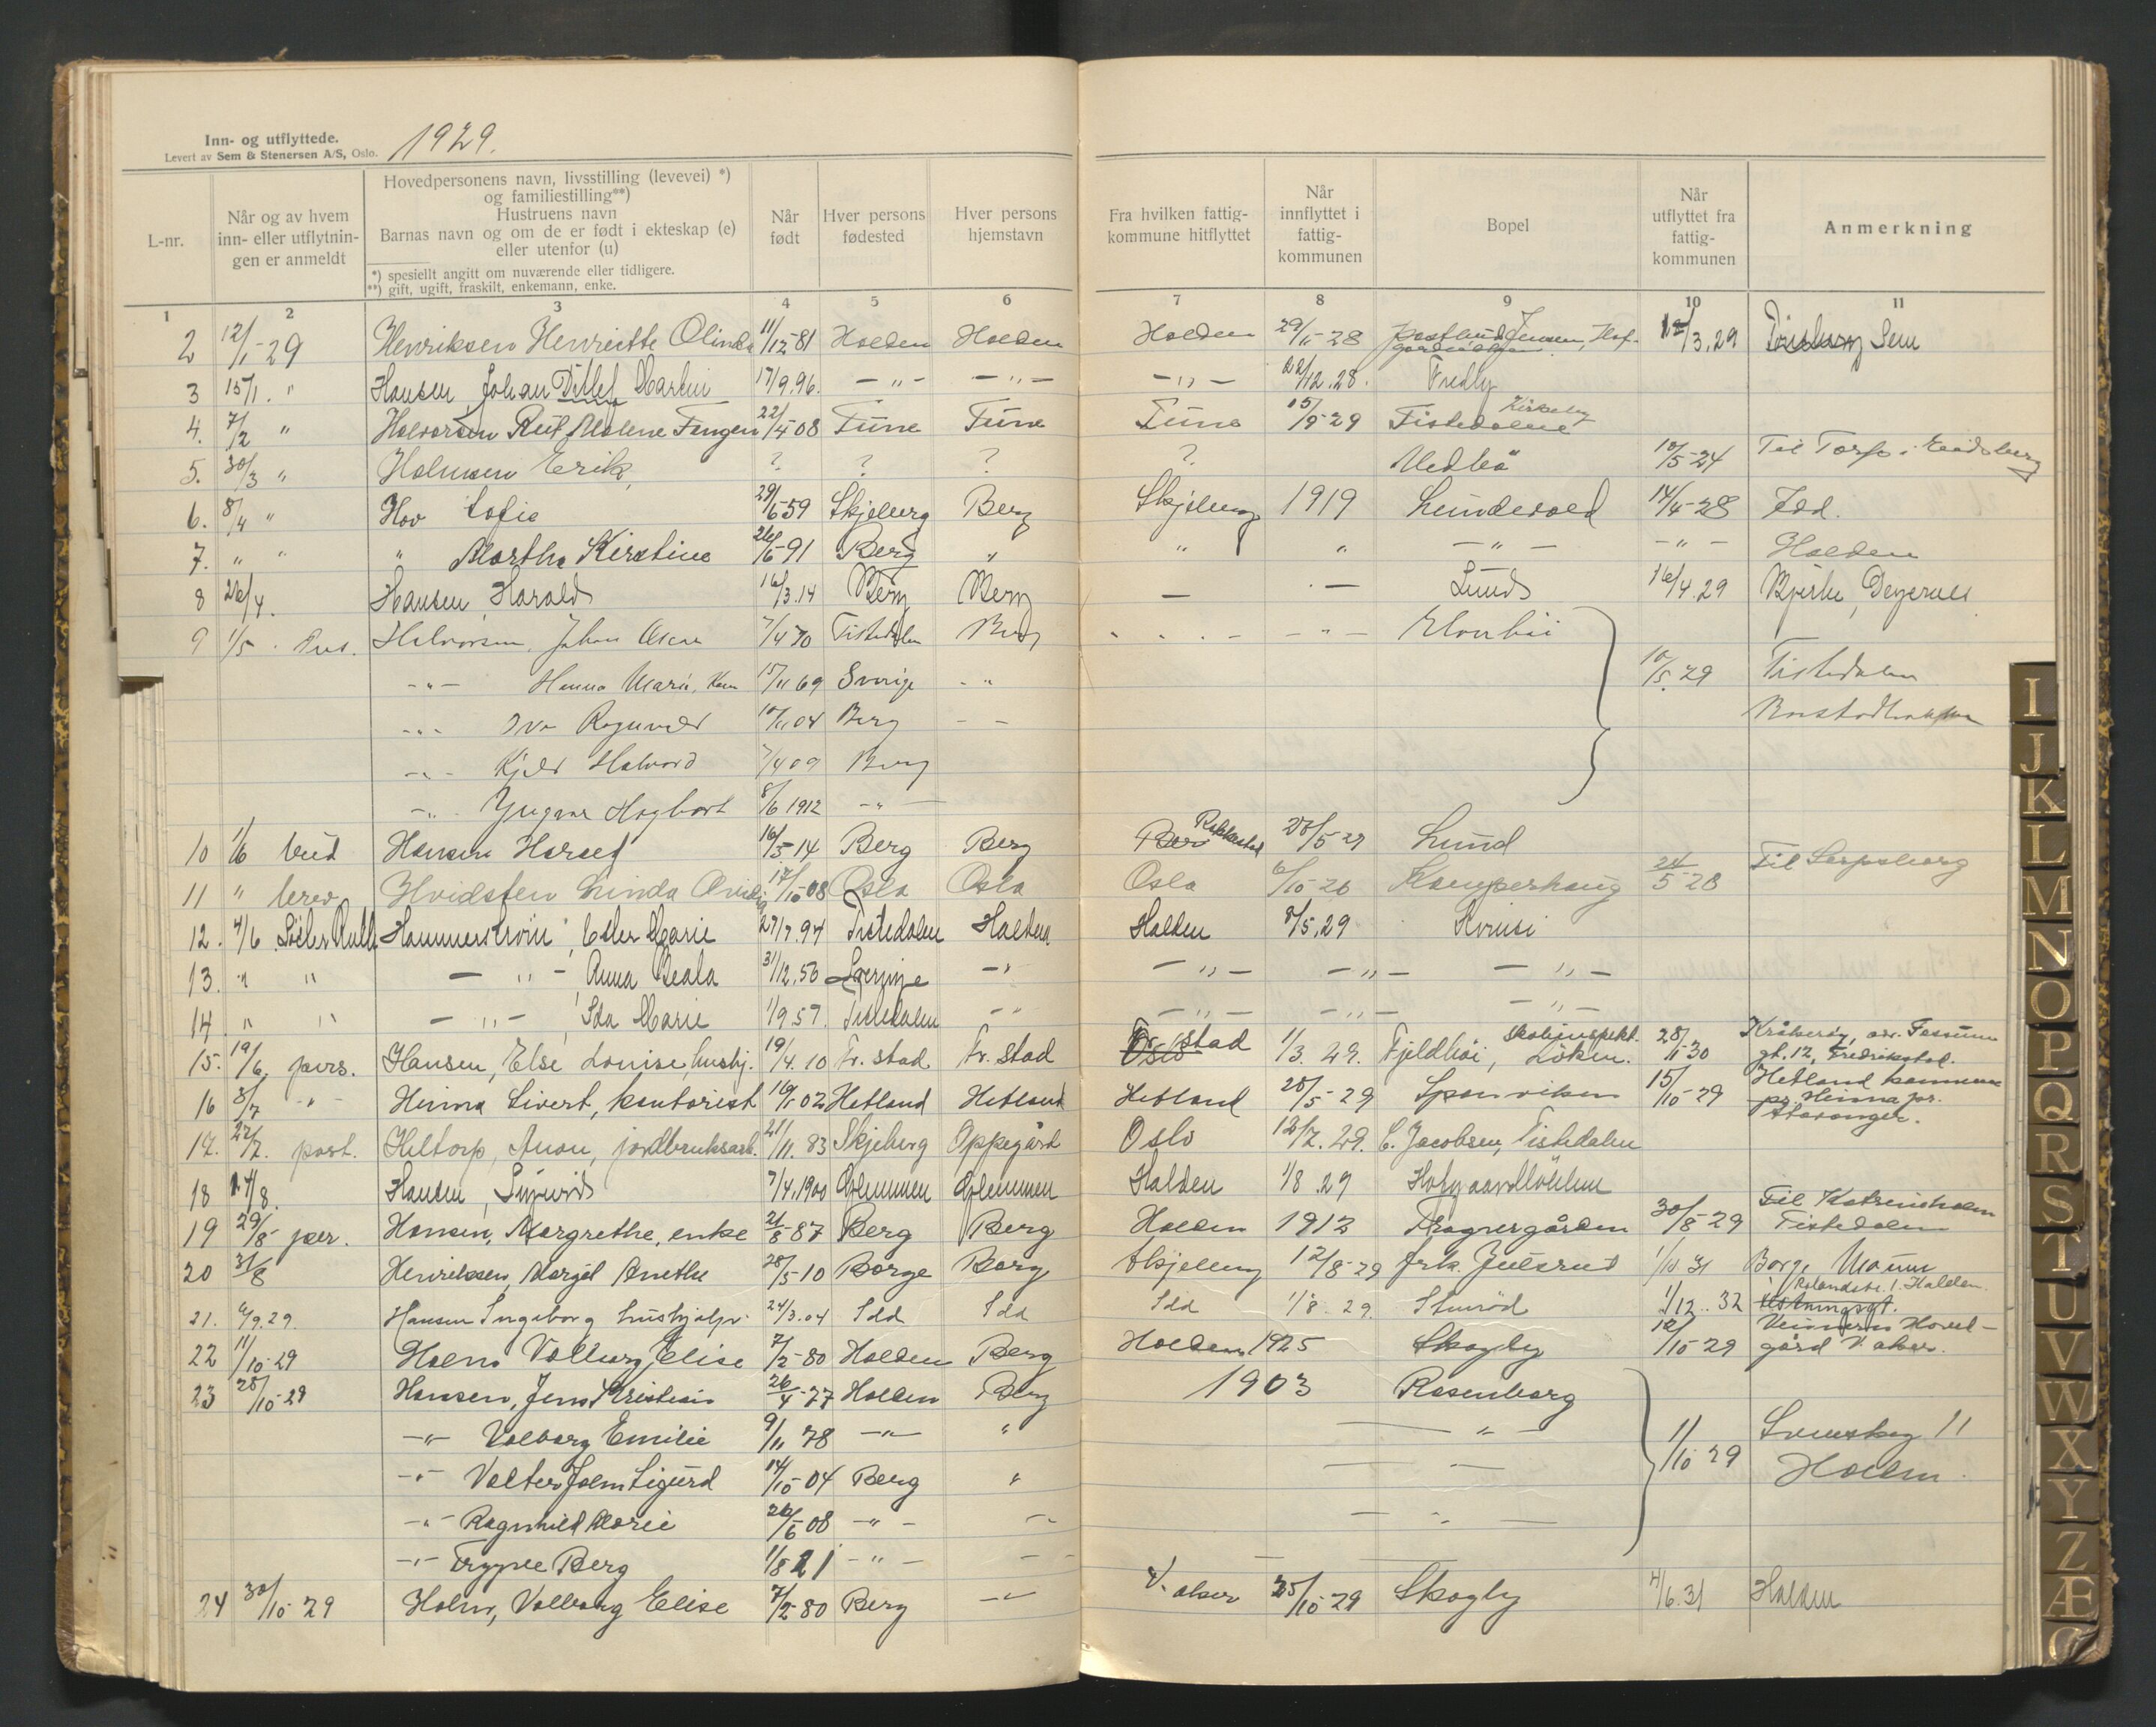 Inn- og utflyttede.
Levert av Sem & Stenersen A/S, Oslo.
1929.
L-nr.
Når og av hvem inn- eller utflytnin-gen er anmeldt
Hovedpersonens navn, livsstilling (levevei) *)
og familiestilling**)
Hustruens navn
Barnas navn og om de er født i ekteskap (e)
eller utenfor (u)
*) spesiellt angitt om nuværende eller tidligere.
**) gift, ugift, fraskilt, enkemann, enke.
Når født
Hver persons fødested
Hver persons hjemstavn
Fra hvilken fattig-kommune hitflyttet
Når innflyttet i fattig-kommunen
Bopel
Når utflyttet fra fattig-kommunen
Anmerkning
1 2 3 4 5 6 7 8 9 10 11
2 12/1-29 Henriksen Henriette Olinda 11/12-81 Halden Halden Halden 29/11-28 12/3.29 Tönsberg Sem
3 15/1. " Hansen Johan Ditlef Martin 17/9.96. -"- -"- -"- 22/12.28. Fredly
4. 7/2 " Halvorsen Rut Malene Fangen 22/4-08 Tune Tune Tune 15/9-29 Tistedalen Kirkeby
5. 30/3 " Holmsen Erik ? ? ? ? 10/5-24 Til Torp i Eidsberg
6. 8/4 " Hov Sofie 29/6-59 Skjeberg Berg Skjeberg 1919 Lundevold 14/4-28 Idd.
7. " " " Martha Kirstine 26/6-91 Berg " " " -"- -"- Halden
8 26/4. Hansen, Harald 16/3.14 Berg Berg - - Lunds 16/4.29 Bjerke, Degernes
9 1/5 Halvorsen, Johan Oscar 7/4 70 Tistedalen Berg -"- 10/5.29 Tistedalen
-"- Hanna Marie, 15/11 69 Sverige -"
-"- Ragnvald 10/11 04 Berg - -
-"- Kjeld Halvard 7/4 09 Berg
-"- Yngvar Hagbart 8/6 1912 -"-
10 1/6 bud Hansen Harald 16/3-14 Berg Berg Berg Rakkestad 28/5-29 Lund
11 " brev Hvidsten Linda 17/10-08 Oslo Oslo Oslo 6/10-26 Kamperhaug 24/5-28 Til Sarpsborg
12. 4/6 Söster Ruth Hammerström, Ester Marie 27/7.94 Tistedalen Halden Halden 8/5.29
13. " " -"- Anna Beata 31/12.56 Sverige -" -"- -"- -"-
14. " " -"- Ida Marie 1/9.57. Tistedalen -" -"- -"- -"-
15. 19/6 pers. Hansen, Else Louise, hushj. 19/4.10 Fr. stad Fr. stad Oslo Fr. stad 1/3.29. Fjeldhöi, skoleinspekt. Löken. 28/1-30 Kråkeröy, adr. gt. 12, Fredrikstad.
16 8/7 -"- Hinna Sivert, kontorist 16/1-02 Hetland Hetland Hetland 28/5-29 Sponviken 15/10-29 Hetland kommune pr. Hinna pr. Stavanger.
17. 22/7. post. Heltorp, Anon, jordbruksarb. 21/11.83 Skjeberg Oppegård Oslo 12/7.29. C. Jacobsen, Tistedalen
18 14/8. Hansen, Sigurd 7/4.1900 Glemmen Glemmen Halden 1/8.29
19 29/8 per. Hansen, Margrethe, enke 21/8-87 Berg Berg Halden 1912 Fragnergården 30/8-29 Til Katrineholm Tistedalen
20 31/8 Henriksen, Margit Anethe 28/5-10 Borge Borge Skjeberg 12/8-29 frk. Julsrud 1/10 31 Borge
21. 6/9.29. Hansen Ingeborg hushjelp 24/3.04 Idd Idd Idd 1/8.29. Stenröd 1/12.32 Halden
22 11/10-29 Holm Valborg Elise 7/2-80 Halden Berg Halden 1925 Skogby 12/10-29 gård V. aker.
23 28/10-29 Hansen, Jens Kristian 26/4-77 Halden Berg 1903 Rosenborg
-"- Valborg Emilie 9/11 78 -"- " -"- 1/10 29 11
-"- Valter John Sigurd 14/10-04 Berg " Halden.
-"- Ragnhild Marie 26/6-08 -"- -"-
-"- Trygve Berg 1/8 21 -"- -
24 30/10-29 Holm, Valborg Elise 7/2-80 Berg -"- V. aker 25/10-29 Skogby 4/6.31 Halden
I
J
K
L
M
N
O
P
Q
R
S
T
U
V
W
X
Y
Z
Æ